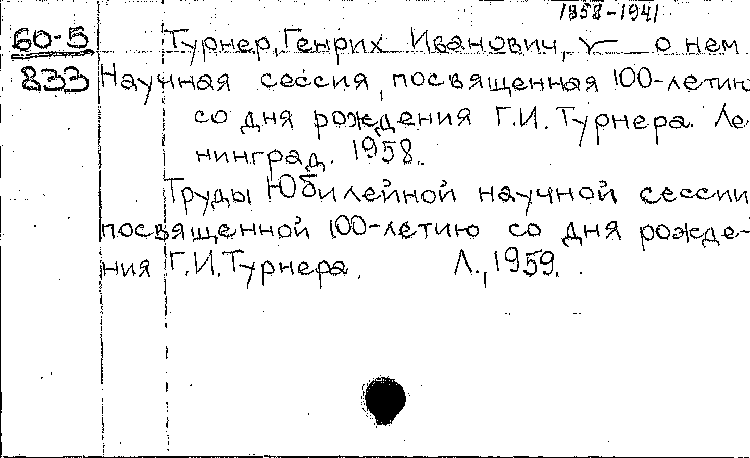 1858-1941
60-5 Турнер, Генрих Иванович, о нем
833 Научная сессия, посвященная 100-летию
со дня рождения Г.И. Турнера. Ле
нинград. 1958.
Труды Юбилейной научной сессии
посвященной 100-летию со дня рожде-
ния Г.И. Турнера. Л., 1959.